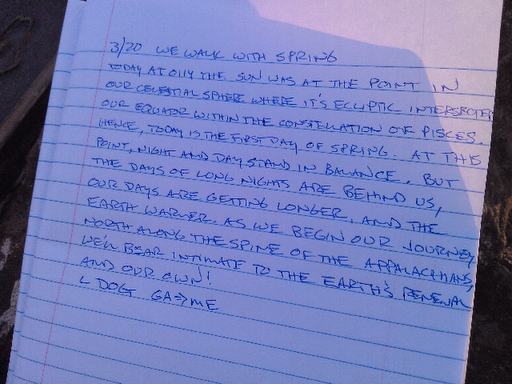 3/20 WE WALK WITH SPRING
TODAY AT 0114 THE SUN WAS AT THE POINT IN
OUR CELESTIAL SPHERE WHERE IT'S ECLIPTIC INTERSECTED
OUR EQUATOR WITHIN THE CONSTELLATION OF PISCES.
HENCE, TODAY IS THE FIRST DAY OF SPRING. AT THIS
POINT, NIGHT AND DAY STAND IN BALANCE, BUT
THE DAYS OF LONG NIGHTS ARE BEHIND US,
OUR DAYS ARE GETTING LONGER, AND THE
EARTH WARMER. AS WE BEGIN OUR JOURNEY
NORTH ALONG THE SPINE OF THE APPALACHIANS,
WE'LL BEAR INTIMATE TO THE EARTH'S RENEWAL
AND OUR OWN!
L DOG GA→ME